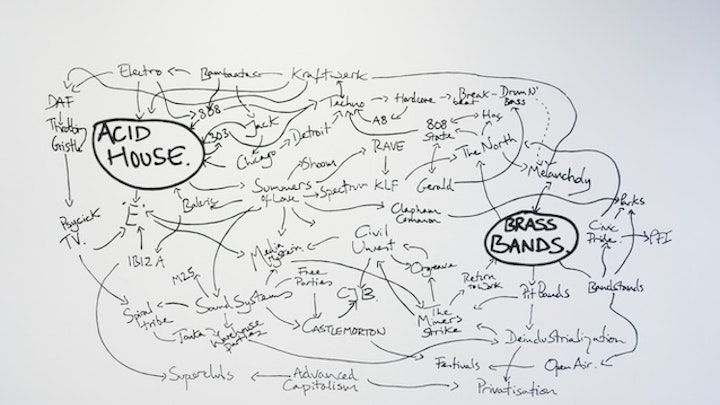 Electro
Bambaataa
Kraftwerk
DAF
Throbbing
Gristle
ACID
HOUSE.
808
303
Jack
Chicago
Detroit
Techno
Hardcore
Break-
beat
Drum N'
Bass
A8
808
State
Hac
RAVE
The North
Melancholy
Shoom
Summers
of Love
Spectrum
KLF
Gerald
Balaric
Clapham
Common
Parks
Psychick
TV.
'E'
BRASS
BANDS.
Civic
Pride.
PFI
IBIZA
Media
Hysteria
Civil
Unrest
M25
Free
Parties
Orgreave
Return
to Work
Pit Bands
Bandstands
Spiral
tribe
Sound Systems
CJB.
The
Miners
Strike
Tonka
Warehouse
parties
CASTLEMORTON
Deindustrialization
Festivals
Open Air.
Superclubs
Advanced
Capitalism
Privatisation